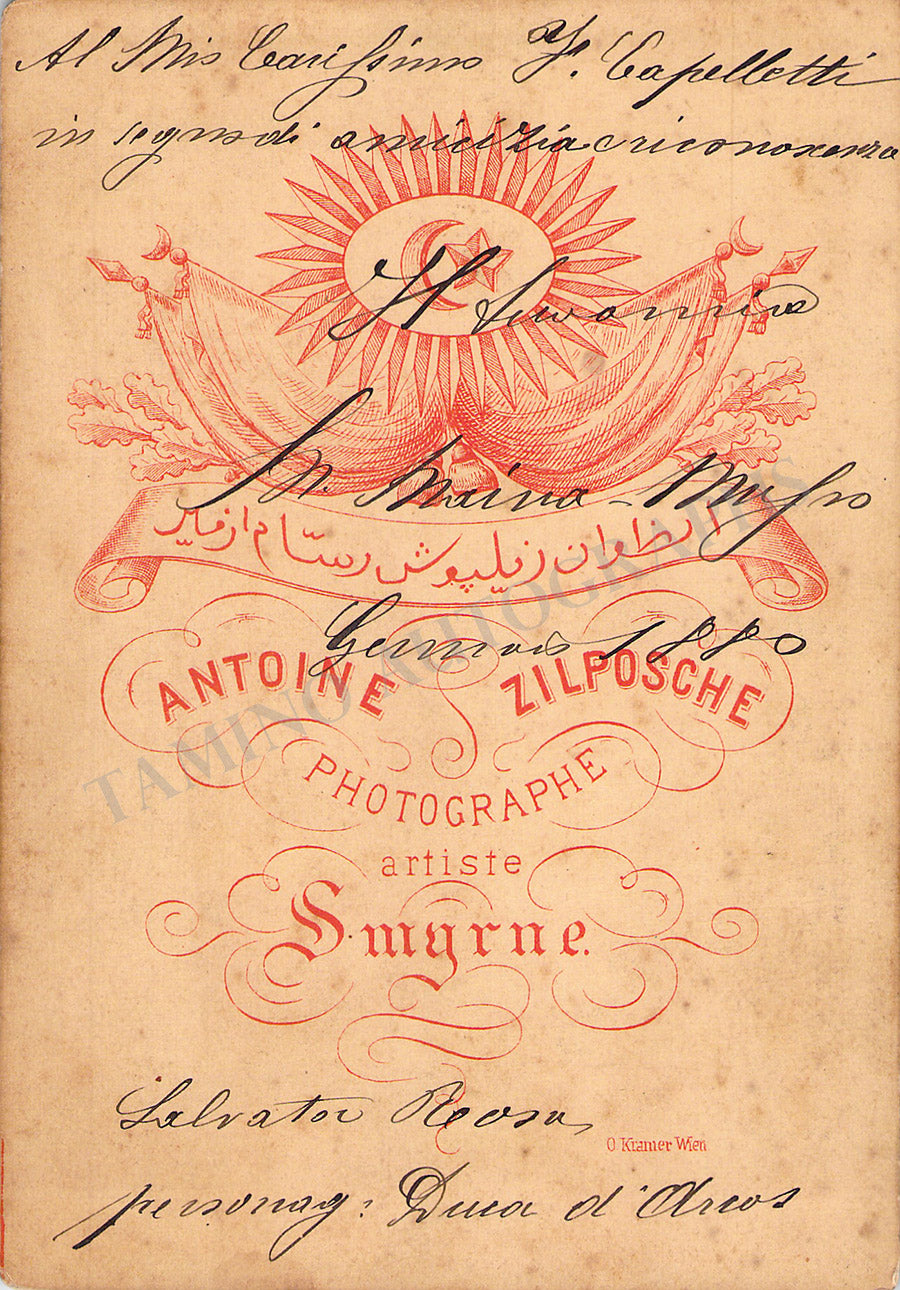 Al Mio Carissimo F. Capelletti
in segno di amicizia e riconoscenza
Il
A. Maina-
انطوان زیلپوش رسام ازمیر
1880
ANTOINE ZILPOSCHE
PHOTOGRAPHE
artiste
Smyrne.
Salvator Rosa
O. Kramer Wien
personag: Duca d'Arcos
TAMINO AUTOGRAPHS